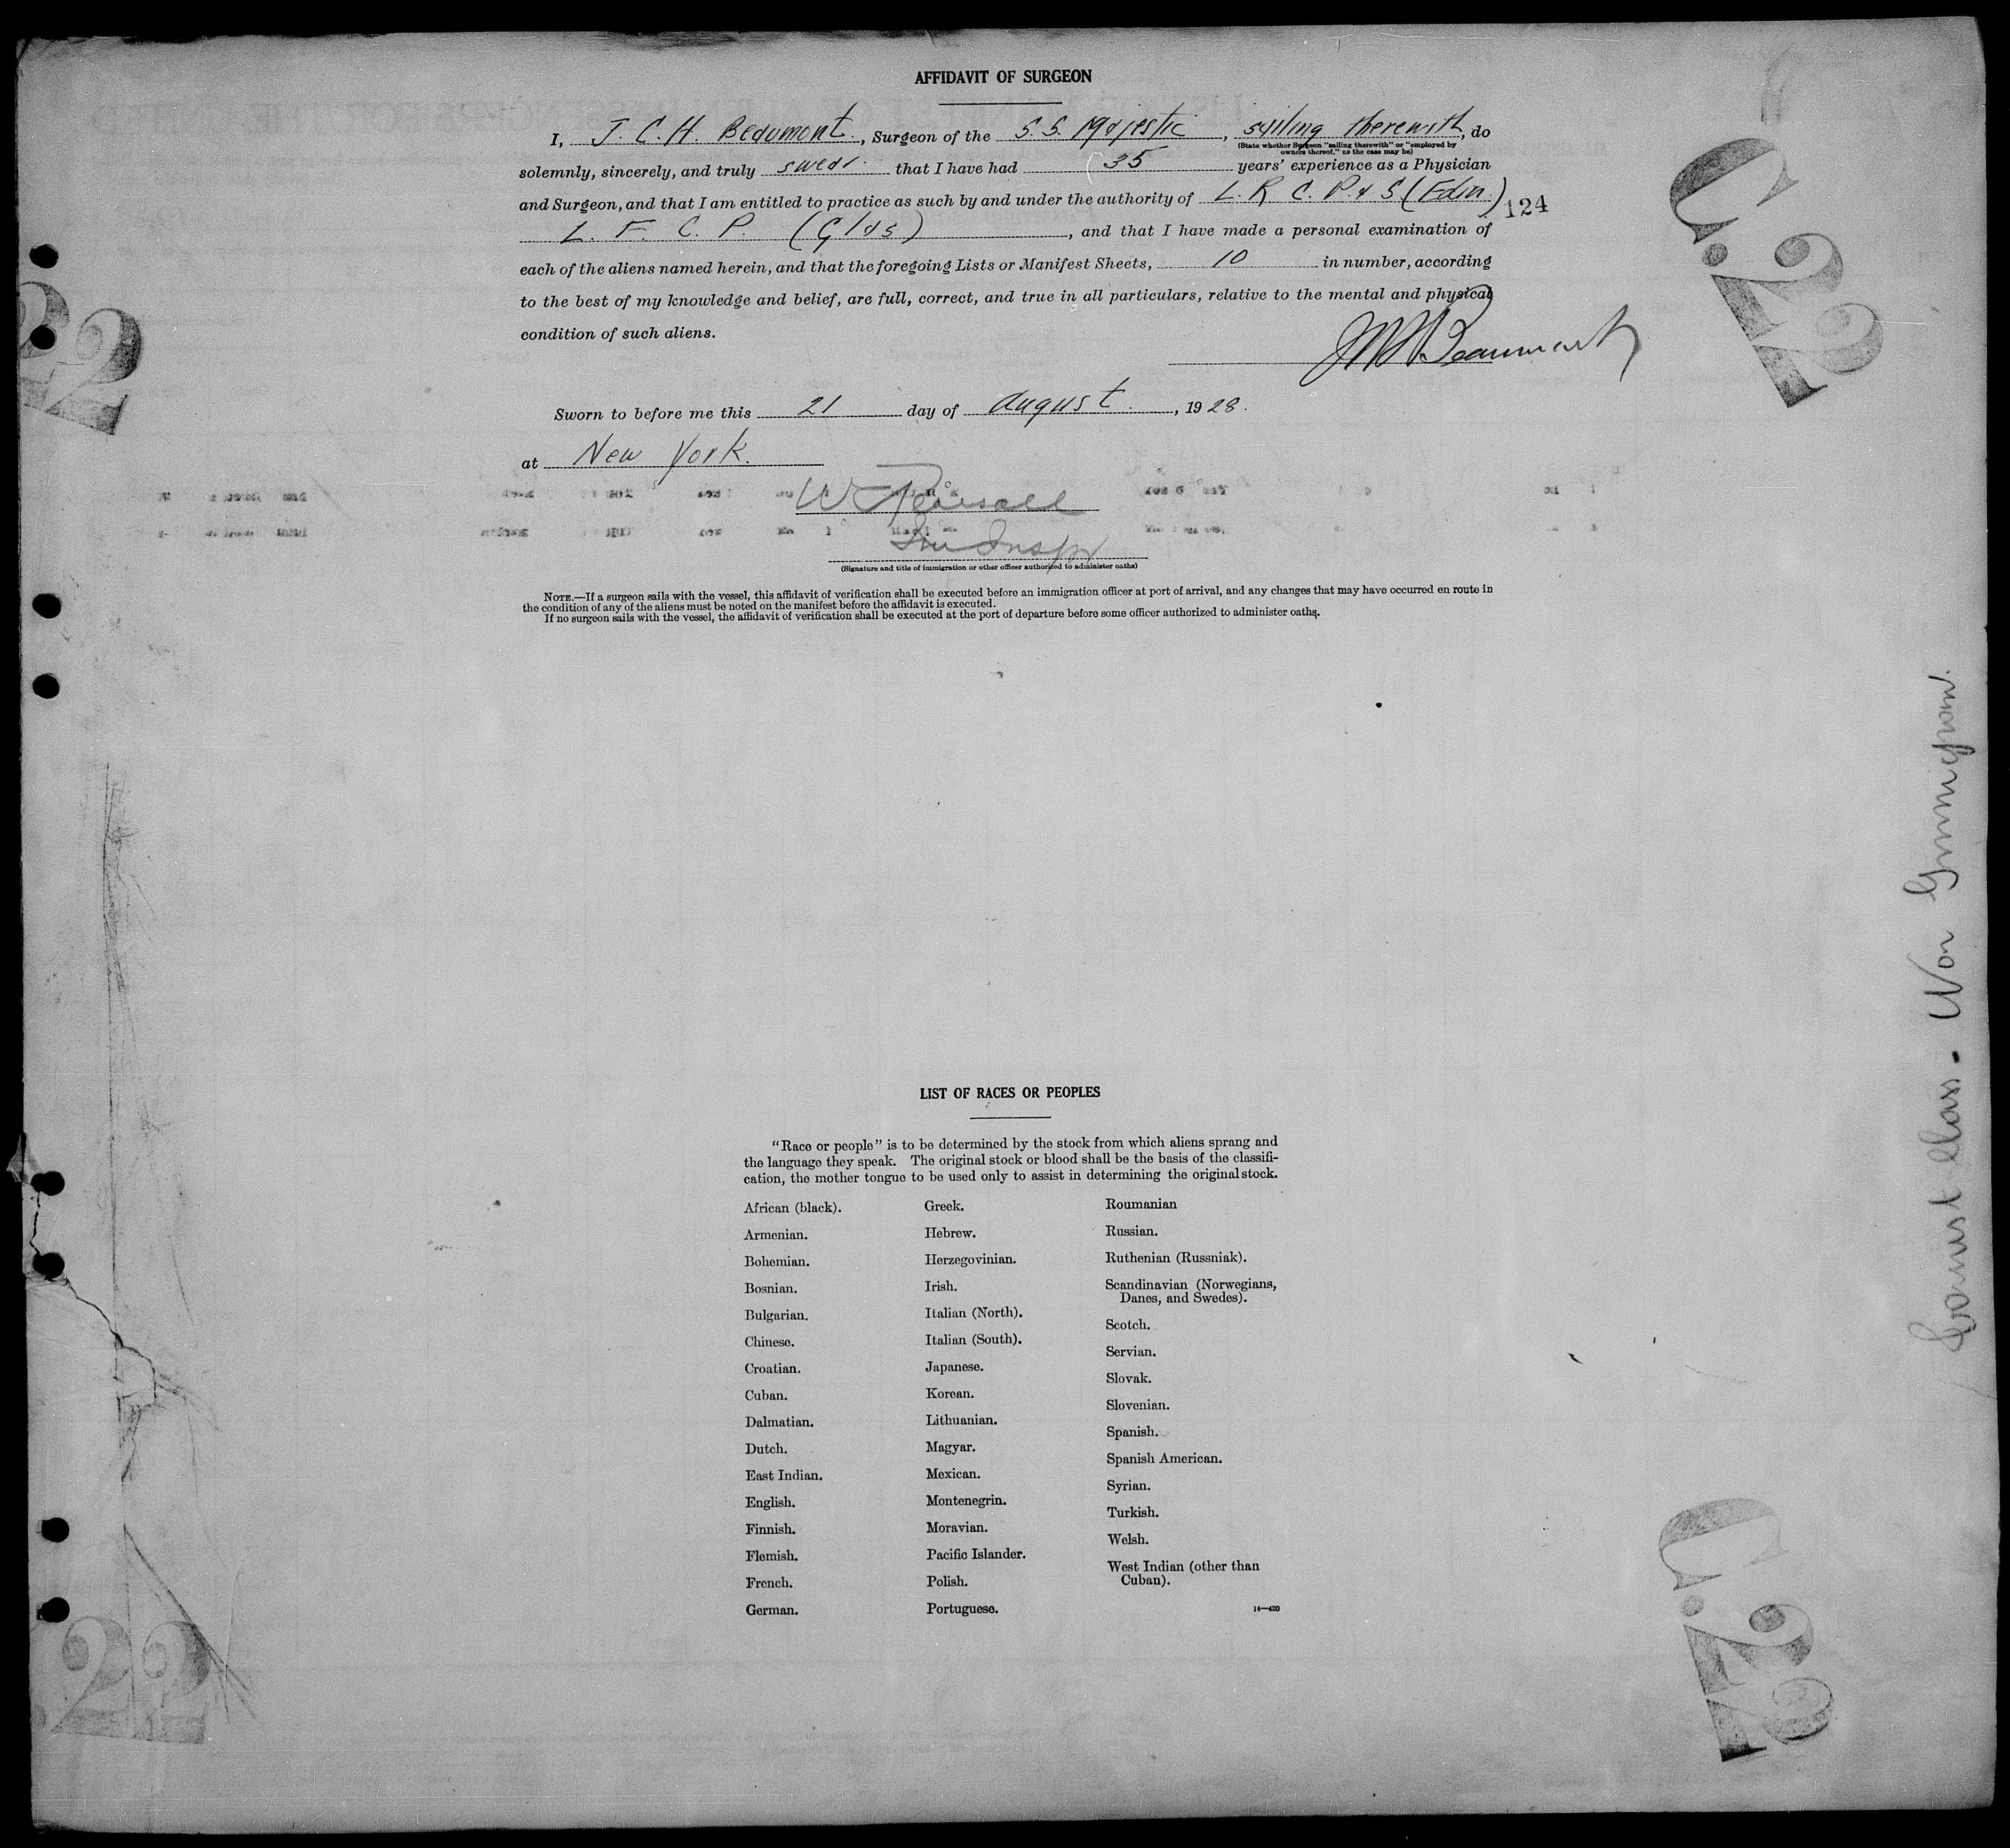 AFFIDAVIT OF SURGEON
I, J. C. H. Beaumont., Surgeon of the S.S. Majestic, sailing therewith, do
(State whether Surgeon "sailing therewith" or "employed by
owners thereof," as the case may be)
solemnly, sincerely, and truly swear that I have had 35 years' experience as a Physician
and Surgeon, and that I am entitled to practice as such by and under the authority of L. R. C. P. & S (Edin.)
124
L. F. C. P. (Glas), and that I have made a personal examination of
each of the aliens named herein, and that the foregoing Lists or Manifest Sheets, 10 in number, according
to the best of my knowledge and belief, are full, correct, and true in all particulars, relative to the mental and physical
condition of such aliens.
JCHBeaumont
Sworn to before me this 21 day of August., 1928.
at New York.
(Signature and title of immigration or other officer authorized to administer oaths)
NOTE.—If a surgeon sails with the vessel, this affidavit of verification shall be executed before an immigration officer at port of arrival, and any changes that may have occurred en route in
the condition of any of the aliens must be noted on the manifest before the affidavit is executed.
If no surgeon sails with the vessel, the affidavit of verification shall be executed at the port of departure before some officer authorized to administer oaths.
LIST OF RACES OR PEOPLES
"Race or people" is to be determined by the stock from which aliens sprang and
the language they speak. The original stock or blood shall be the basis of the classifi-
cation, the mother tongue to be used only to assist in determining the original stock.
African (black).
Armenian.
Bohemian.
Bosnian.
Bulgarian.
Chinese.
Croatian.
Cuban.
Dalmatian.
Dutch.
East Indian.
English.
Finnish.
Flemish.
French.
German.
Greek.
Hebrew.
Herzegovinian.
Irish.
Italian (North).
Italian (South).
Japanese.
Korean.
Lithuanian.
Magyar.
Mexican.
Montenegrin.
Moravian.
Pacific Islander.
Polish.
Portuguese.
Roumanian
Russian.
Ruthenian (Russniak).
Scandinavian (Norwegians,
Danes, and Swedes).
Scotch.
Servian.
Slovak.
Slovenian.
Spanish.
Spanish American.
Syrian.
Turkish.
Welsh.
West Indian (other than
Cuban).
14—420
C.22
C.22
22
22
Tourist Class. Non